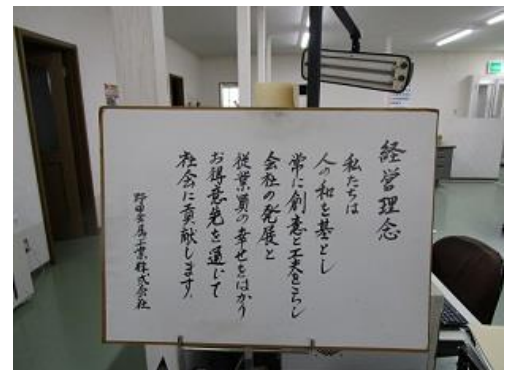 経営理念
私たちは
人の和を基とし
常に創意と工夫をこらし
会社の発展と
従業員の幸せをはかり
お得意先を通じて
社会に貢献します。
野田金属工業株式会社